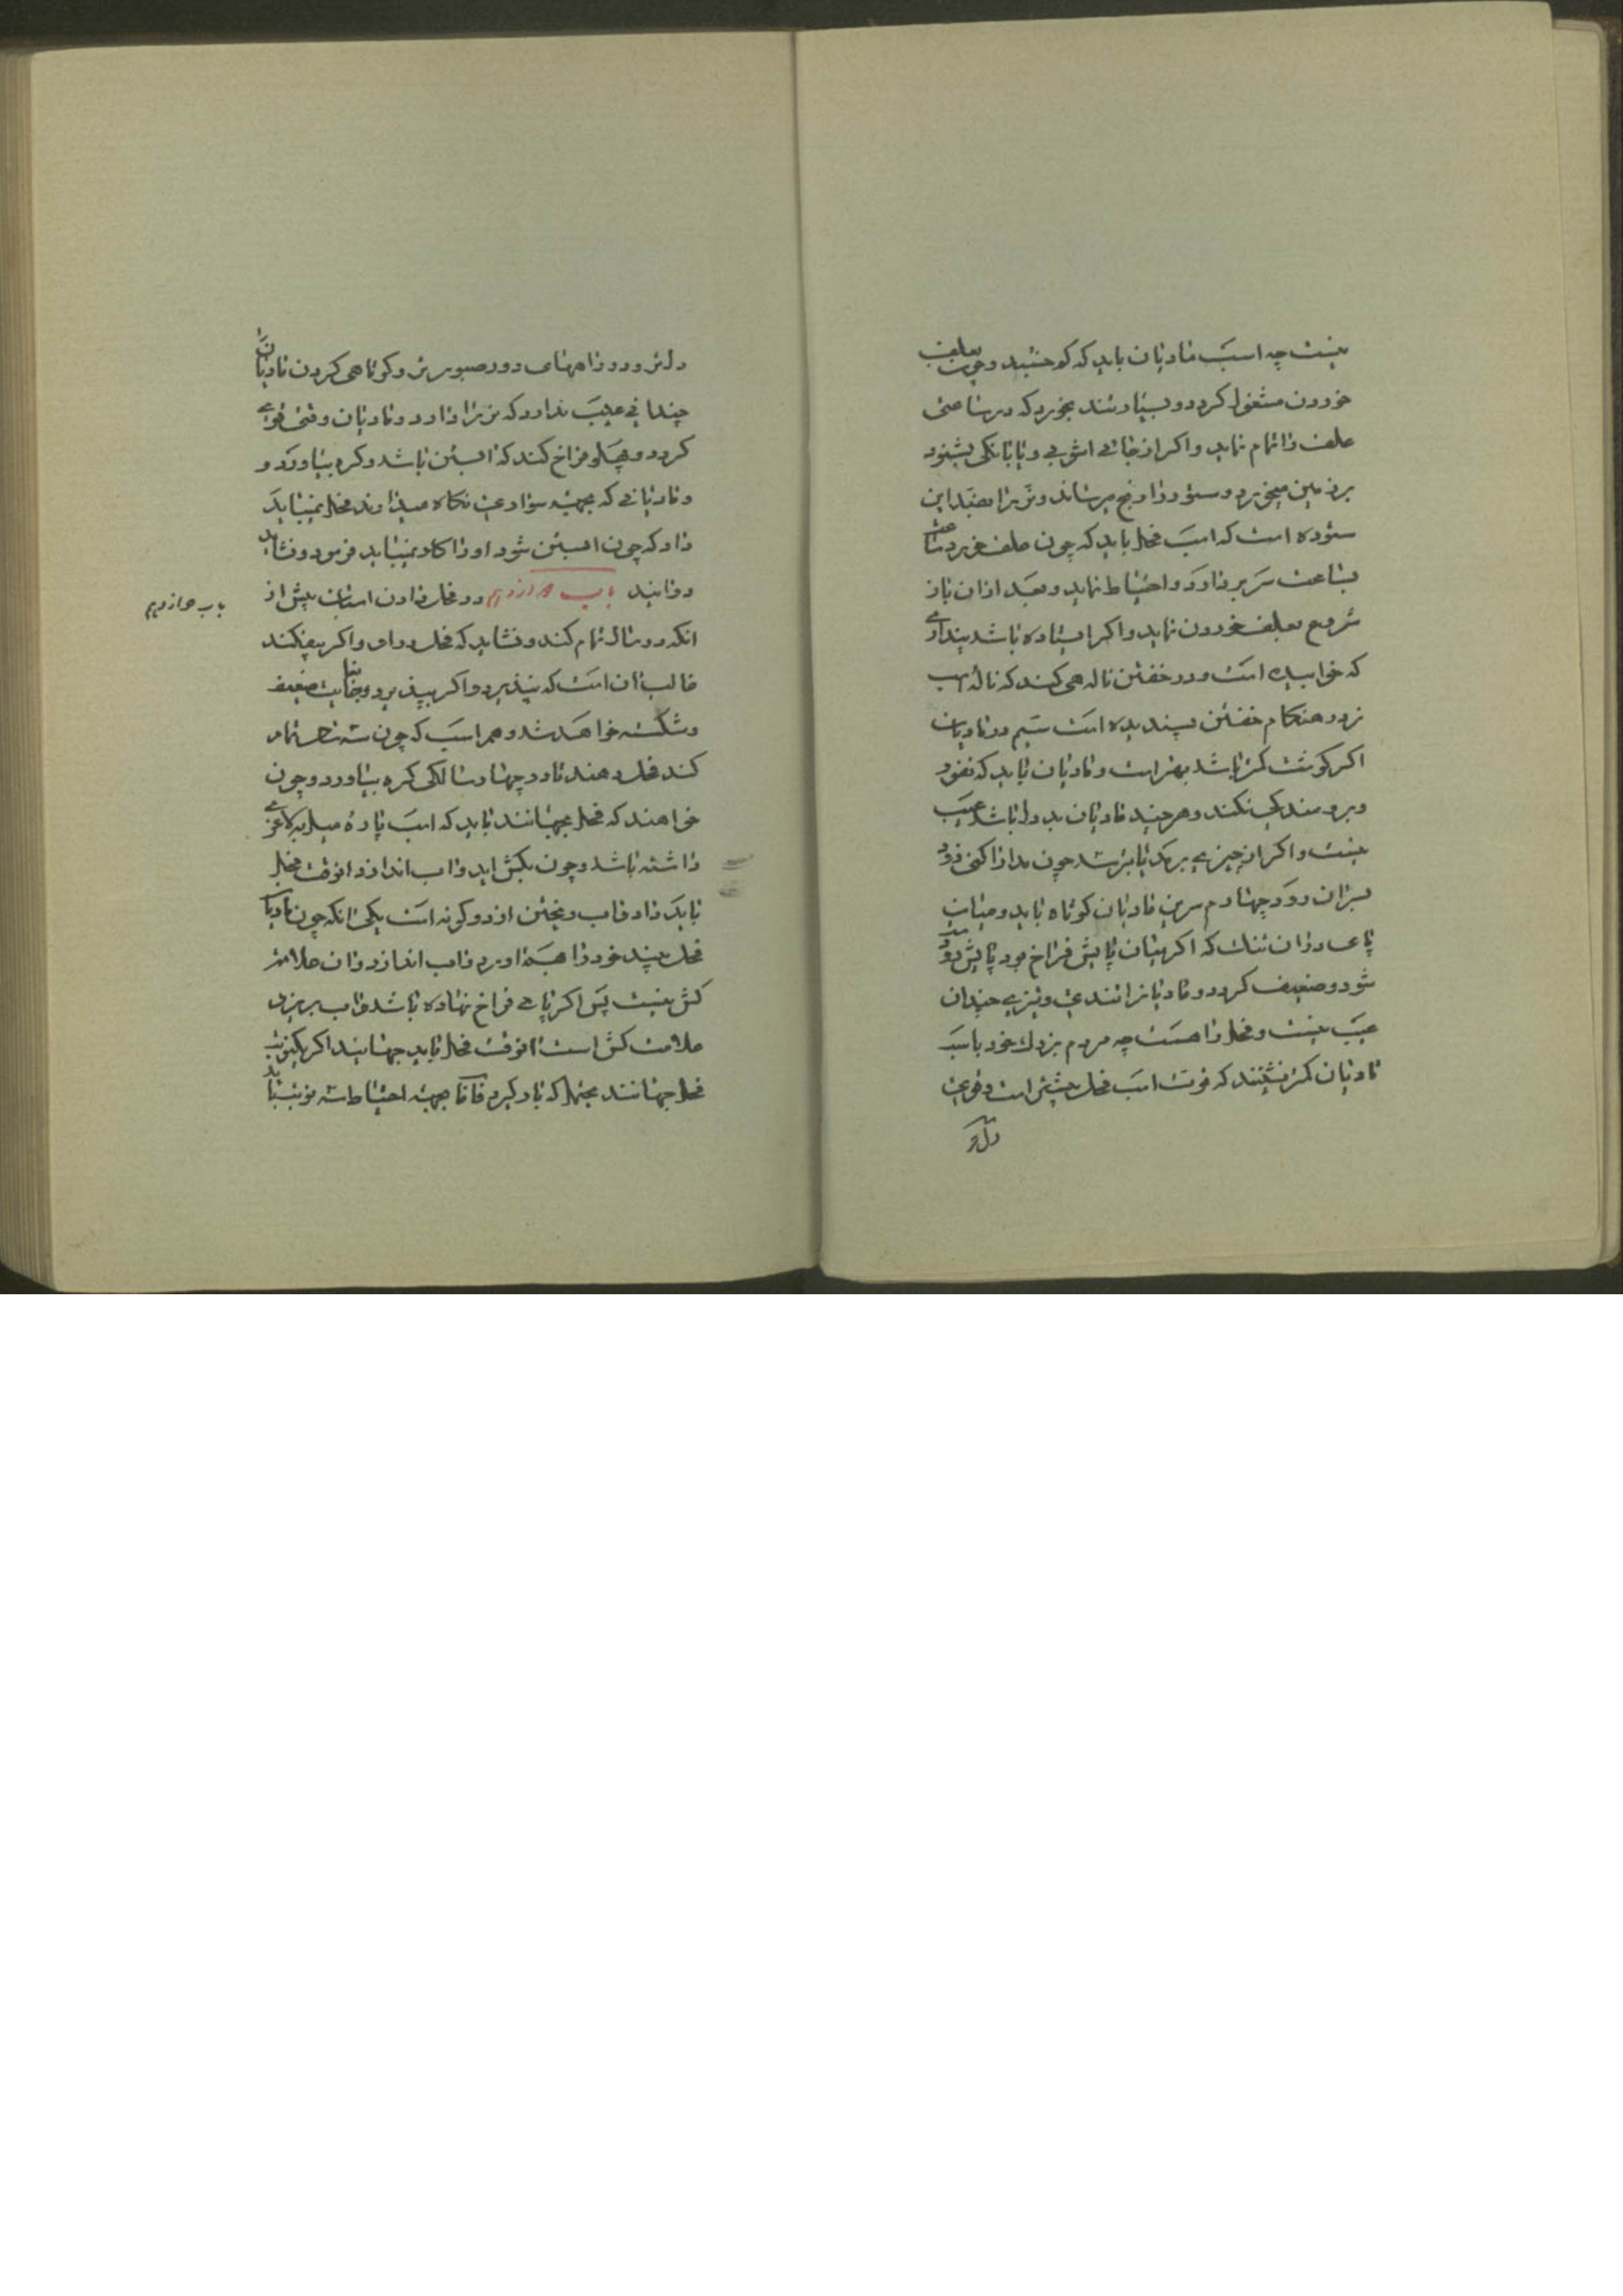 نیست چه اسب مادیان باید که کم خسبد و چون بعلف
خوردن مشغول کردد و بسیار تند بخورد که در ساعتی
علف را تمام نماید و اکر از جائی اشوبی و یا بانکی بشنود
بر زمین میخورد و ستور را رنج میرساند و نر را مضد این
ستوده است که اسب فحل باید که چون علف خورد ساعت
بساعت سر بر دارد و احتیاط نماید و بعد از ان باز
شروع بعلف خوردن نماید و اکر ایستاده باشد پنداری
که خوابیده است و در خفتن ناله همی کند که ناله اسب
نر در هنکام خفتن پسندیده است سیم در مادیان
اکر کوشت کمتر باشد بهتر است و مادیان باید که نفور
و بر و تندی نکند و هر چند مادیان بد دل باشد عیب
نیست و اکر از چیزی برمد یا بترسد چون مدارا کنی زود
بر ان رود چهارم سرین مادیان کوتاه باید و میان
پای و ران تنک که اکر میان پایش فراخ بود پایش زود
شود و ضعیف کردد و مادیانرا تندی و تیزی چندان
عیب نیست و فحل را هست چه مردم بزدل خود باسب
مادیان کمتر نشینند که قوت اسب فحل بیشتر است و قوی
دل تر
دلتر و در راههای دور صبورتر و کوتاهی کردن مادیان
چندانی عیب ندارد که نر را دارد و مادیان وقتی قوی
کردد و پهلو فراخ کند که ابستن باشد و کره بیاورد و
و مادیانی که بجهت سواری نکاه میدارند فحل نمیباید
داد که چون ابستن شود او را کار نمیباید فرمود و نشاید
دوانید باب دوازدهم در فحل دادن اسبان پیش از
انکه دو ساله تمام کند و نشاید که فحل دهی و اکر بیفکند
غالب ان است که نپذیرد و اکر بپذیرد بغایت ضعیف
و شکسته خواهد شد و هر اسب که چون سه سال تمام
کند فحل دهند تا در چهار سالکی کره بیاورد و چون
خواهند که فحل بجهانند باید که اسب پاره میل بلاغری
داشته باشد و چون بکش اید و اب اندازد انوقت فحل
باید داد و اب ریختن از دو کونه است یکی انکه چون مادیان
فحل بیند خود را بهم اورد و اب اندازد و ان علامت
کش نیست پس اکر پای فراخ نهاده باشد و اب بریزد
علامت کش است انوقت فحل باید جهانید اکر یکنوبت
فحل جهانند بجهد که بار کیرد فاما جهت احتیاط سه نوبت باید
باب دوازدهم